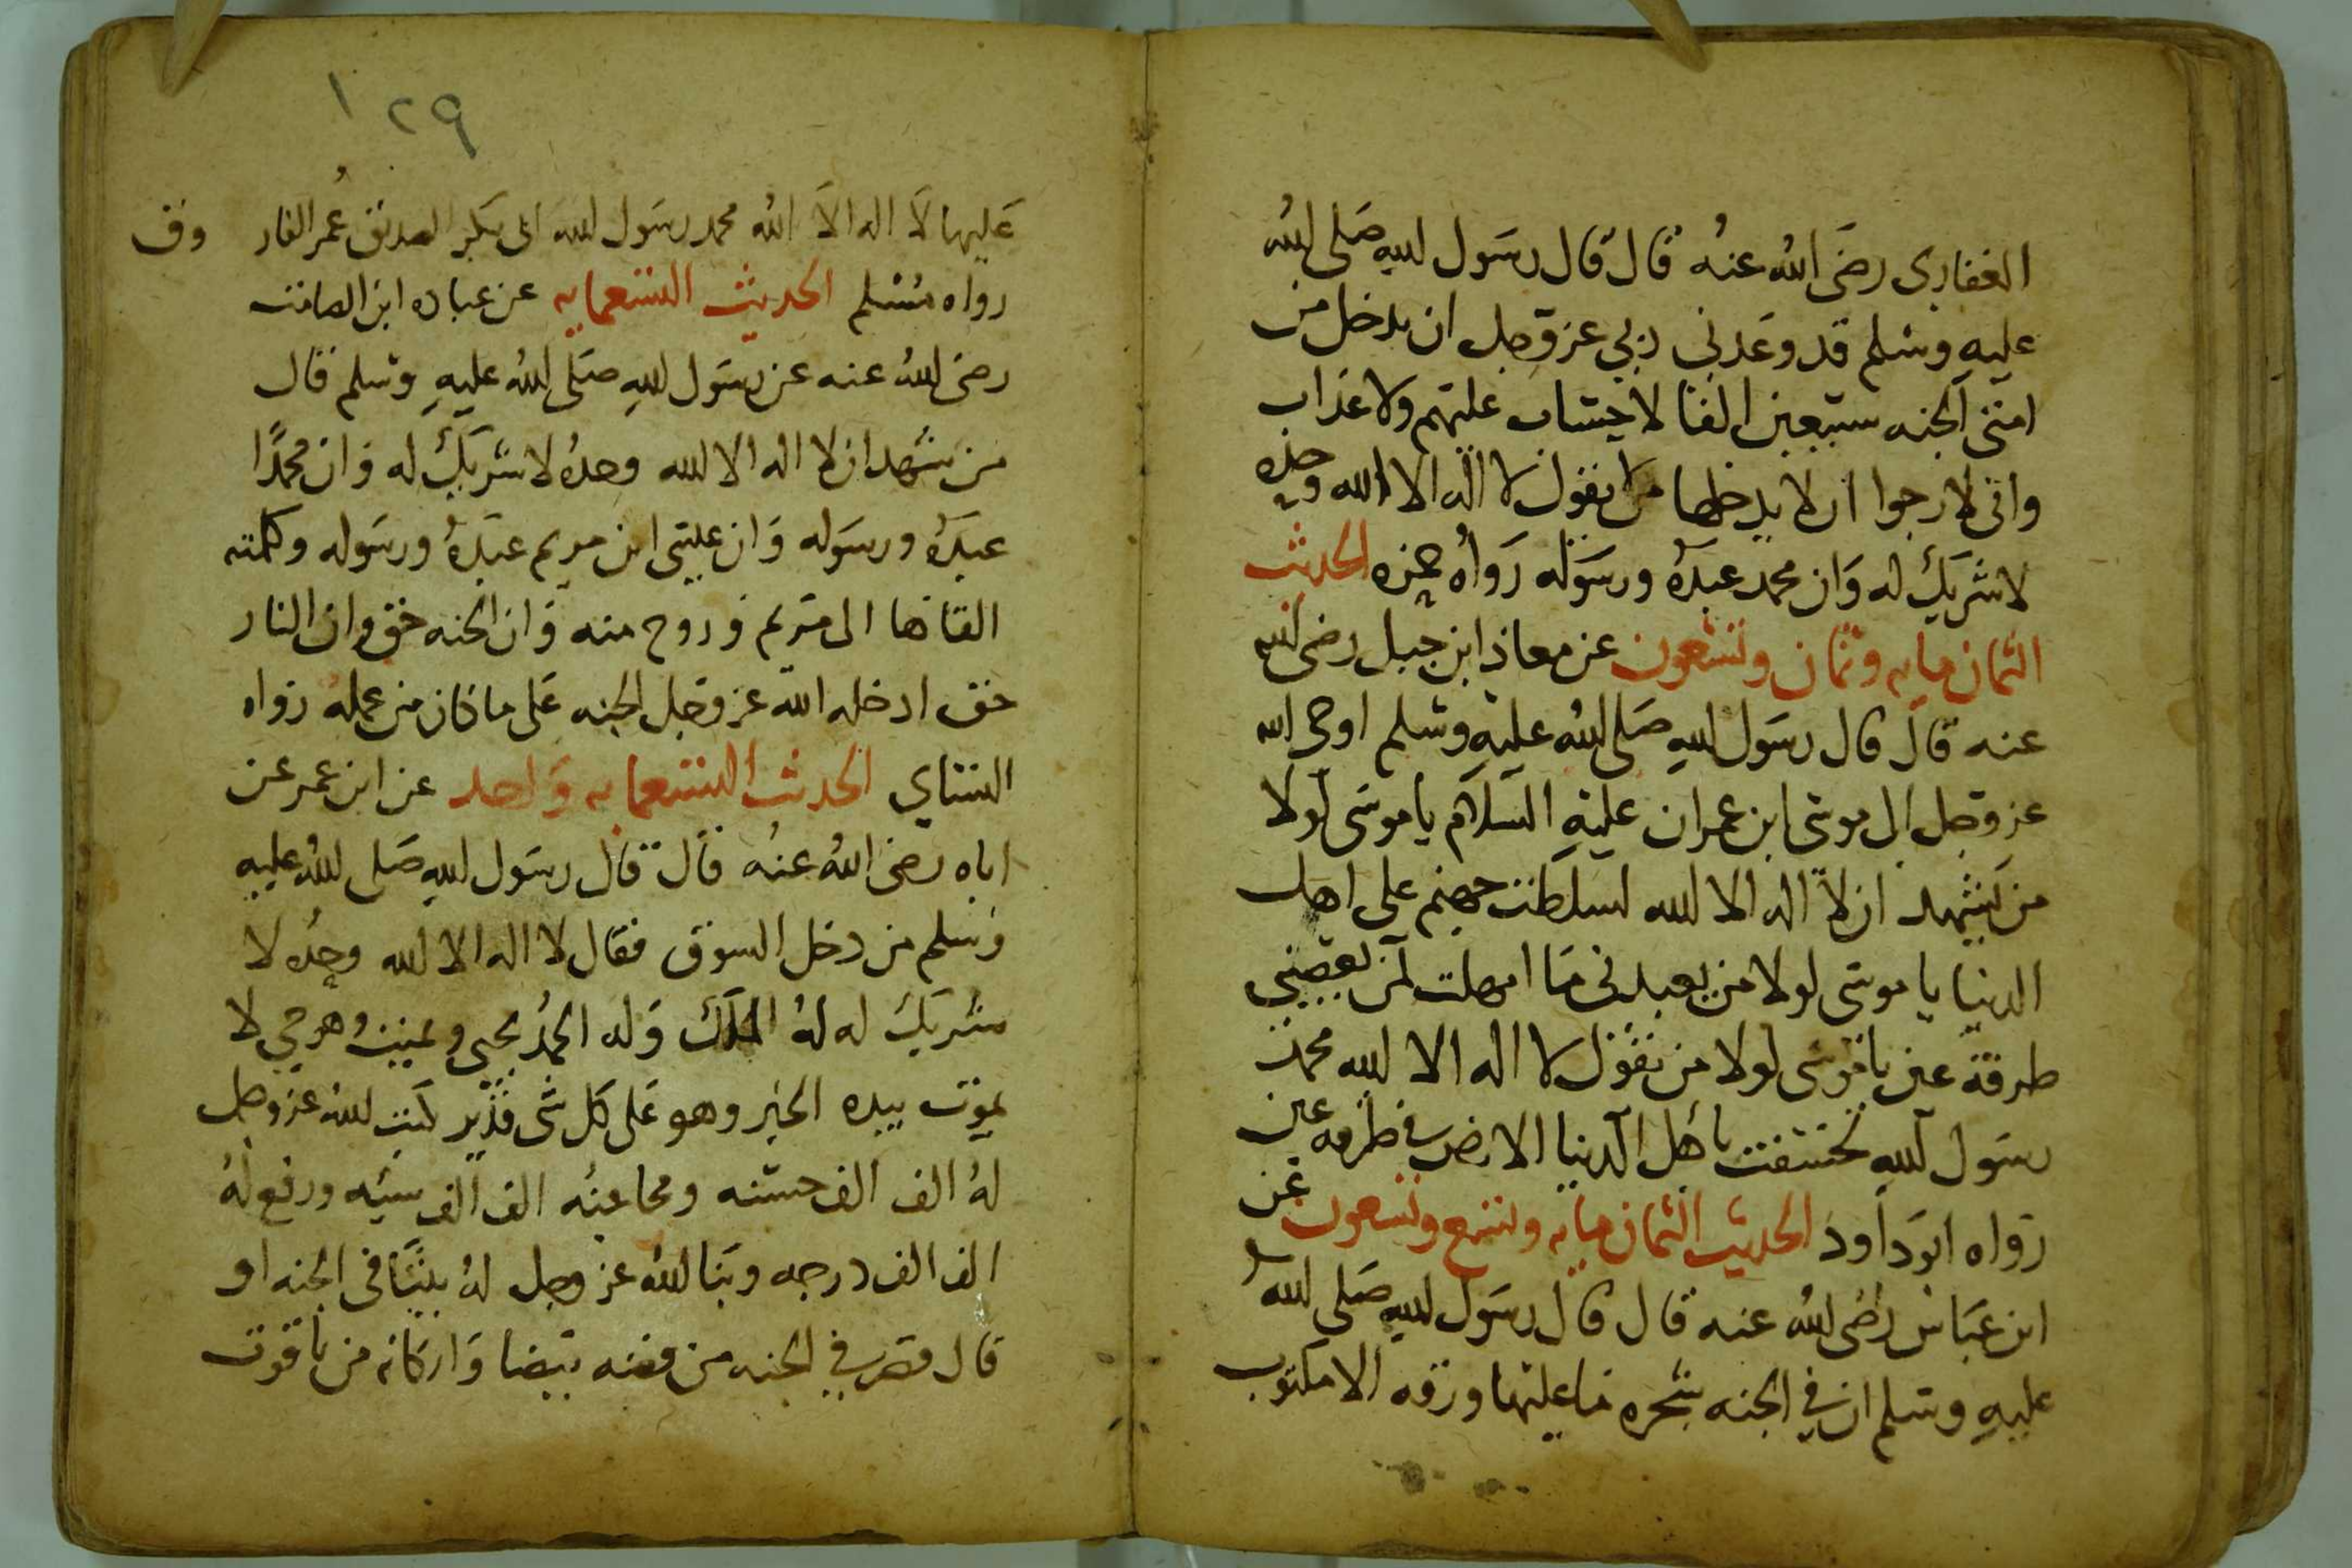 الغفارى رضى الله عنه قال قال رسول الله صلى الله
عليه وسلم قد وعدنى ربى عز وجل ان يدخل من
امتى الجنه سبعين الفا لا حساب عليهم ولا عذاب
وانى لارجوا ان لا يدخلها من يقول لا اله الا الله وحده
لا شريك له وان محمد عبده ورسوله رواه حمزه الحديث
الثمان مايه وثمان وتسعون عن معاذ ابن جبل رضى الله
عنه قال قال رسول الله صلى الله عليه وسلم اوحى الله
عز وجل الى موسى ابن عمران عليه السلام يا موسى لولا
من يشهد ان لا اله الا الله لسلطت جهنم على اهل
الدنيا يا موسى لولا من يعبدنى ما امهلت لمن يعصينى
طرفة عين يا موسى لولا من يقول لا اله الا الله محمد
رسول الله لخسفت باهل الدنيا الارض فى طرفه عين
رواه ابو داود الحديث الثمان مايه وتسع وتسعون عن
ابن عباس رضى الله عنه قال قال رسول الله صلى الله
عليه وسلم ان فى الجنه شجره ما عليها ورقه الا مكتوب
١٢٩
عليها لا اله الا الله محمد رسول الله ابى بكر الصديق عمر الفار وق
رواه مسلم الحديث التسعمايه عن عباده ابن الصامت
رضى الله عنه عن رسول الله صلى الله عليه وسلم قال
من شهد ان لا اله الا الله وحده لا شريك له وان محمدا
عبده ورسوله وان عيسى ابن مريم عبده ورسوله وكلمته
القاها الى مريم وروح منه وان الجنه حق وان النار
حق ادخله الله عز وجل الجنه على ما كان من عمله رواه
النساى الحديث التسعمايه واحد عن ابن عمر عن
اباه رضى الله عنه قال قال رسول الله صلى الله عليه
وسلم من دخل السوق فقال لا اله الا الله وحده لا
شريك له له الملك وله الحمد يحيى ويميت وهو حي لا
يموت بيده الخير وهو على كل شى قدير كتب الله عز وجل
له الف الف حسنه ومحا عنه الف الف سيئه ورفع له
الف الف درجه وبنا الله عز وجل له بيتا فى الجنه او
قال قصر فى الجنه من فضه بيضا واركانه من ياقوت